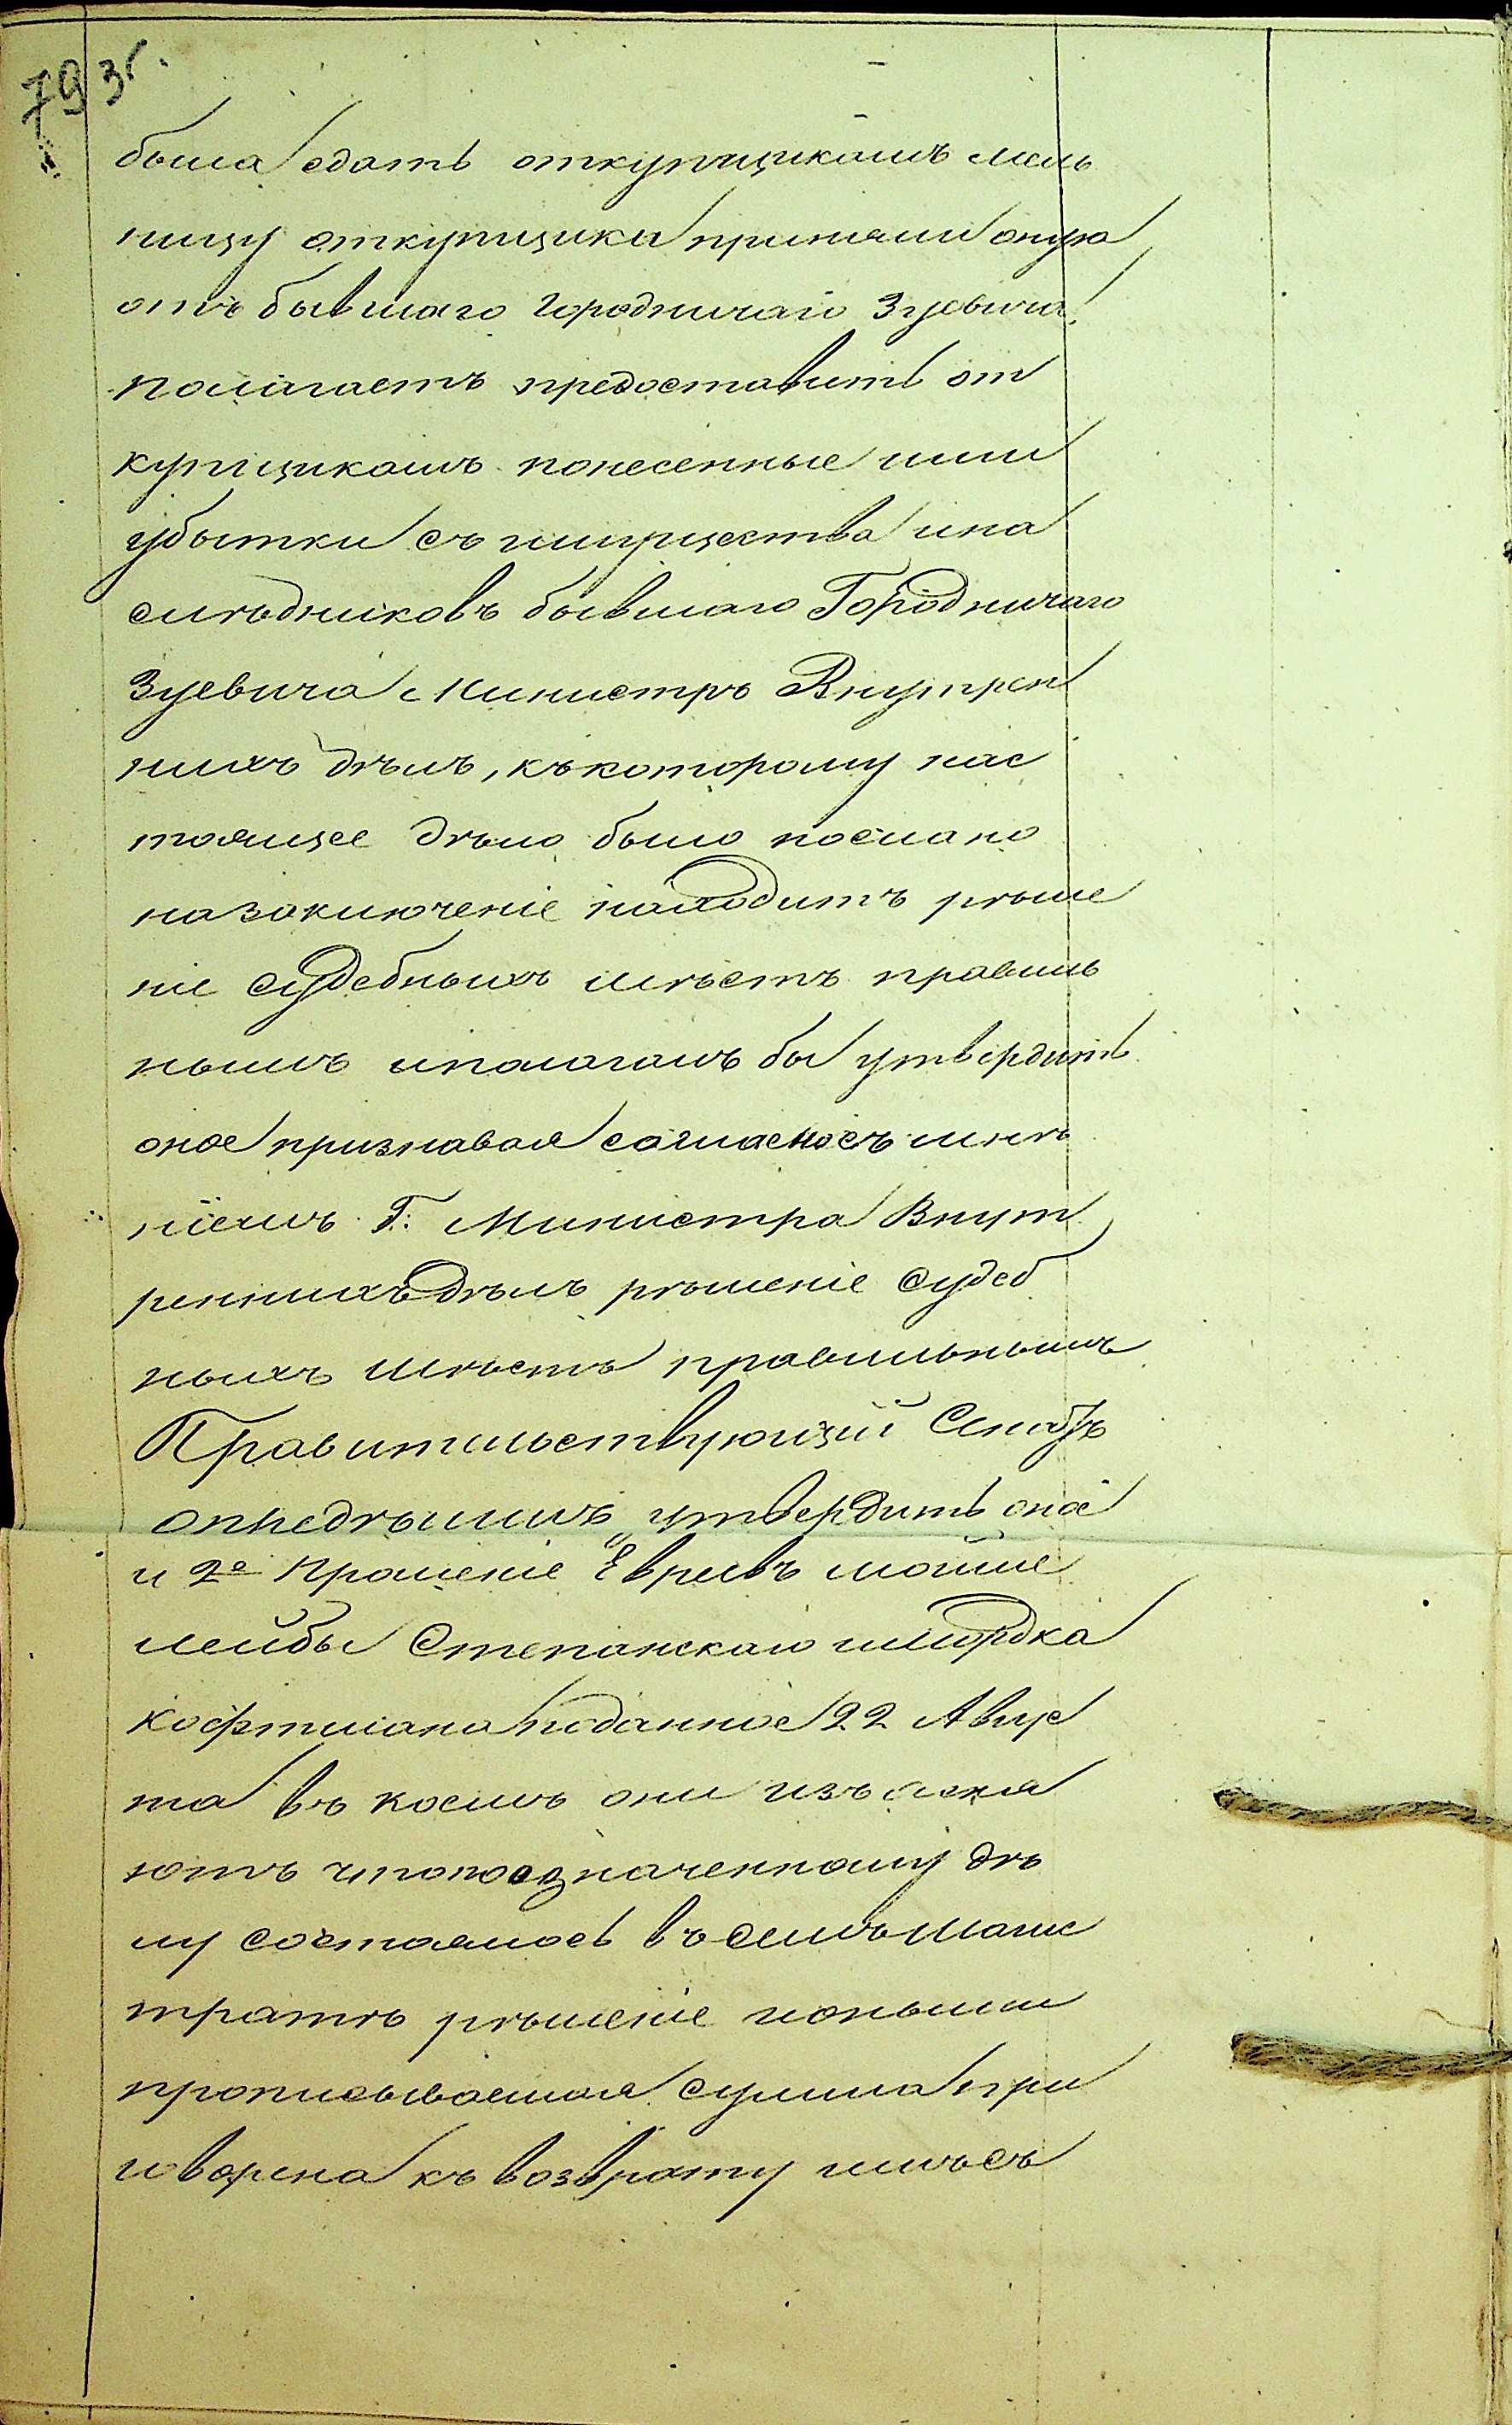 793г.
была сдать откупщикамъ мель
ницу откупщики приняли оную
отъ бывшаго Городничаго Зуевича
полагаетъ предоставить от
купщикамъ понесенные ими
убытки съ имущества и на
слѣдниковъ бывшаго Городничаго
Зуевича Министръ Внутрен
нихъ дѣлъ, къ которому нас
тоящее дѣло было послано
на заключеніе находитъ рѣше
ніе судебныхъ мѣстъ правиль
нымъ и полагалъ бы утвердить
оное признавая согласно съ мнѣ
ніемъ Г. Министра Внут
реннихъ дѣлъ рѣшеніе судеб
ныхъ мѣстъ правильнымъ
Правительствующій Сенатъ
опредѣлилъ утвердить оное
и 2е Прошеніе Евреевъ мойше
лейбы Степанскаго и мордка
Кофтмана поданное 22 Авгус
та въ коемъ они изъясня
ютъ что по означенному дѣ
лу состоялось въ семъ Магис
тратѣ рѣшеніе коньми
прописываемая сумма при
говорена къ возврату имъ съ